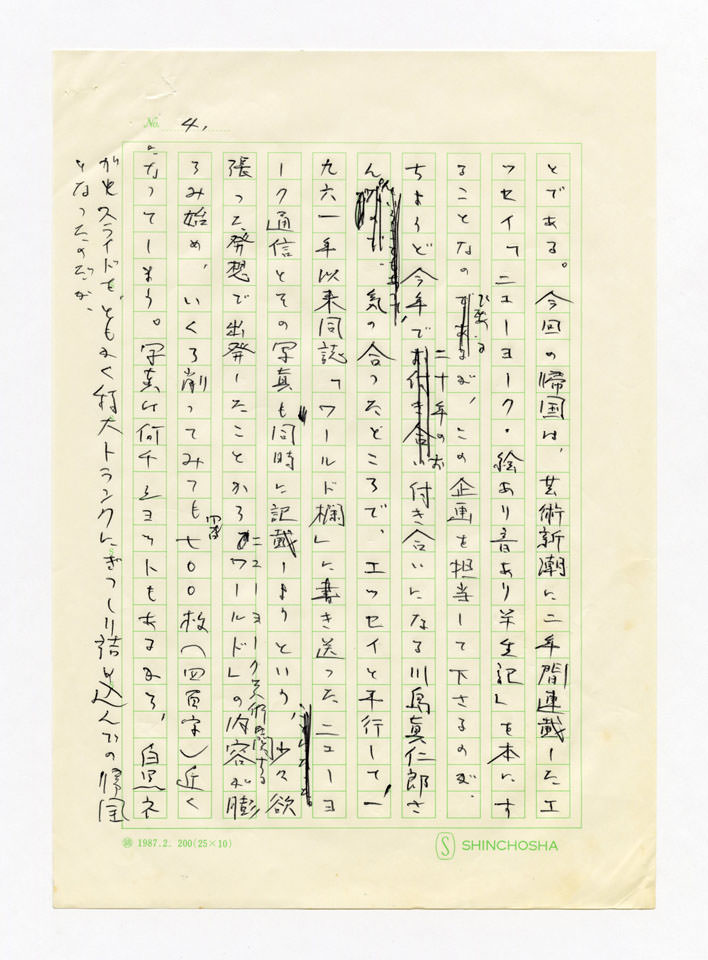 No. 4.
とである。今回の帰国は、芸術新潮に二年間連載したエ
ッセイ「ニューヨーク・絵あり音あり半生記」を本にす
ることなのであるが、この企画を担当して下さるのが、
ちょうど今年で二十年のお付き合いになる川島真仁郎さ
ん、気の合ったところで、エッセイと平行して、一
九六一年以来同誌「ワールド欄」に書き送ったニューヨ
ーク通信とその写真も同時に記載しようという、少々欲
張った発想で出発したことから ニューヨーク美術に関する「ワールド」の内容が膨
らみ始め、いくら削ってみても七〇〇枚(四百字)近く
になってしまう。写真は何千ショットもあるから、白黒ネ
ガとスライドを、ともかく特大トランクにぎっしり詰め込んでの帰国
となったのだが、
1987.2. 200(25×10)
SHINCHOSHA